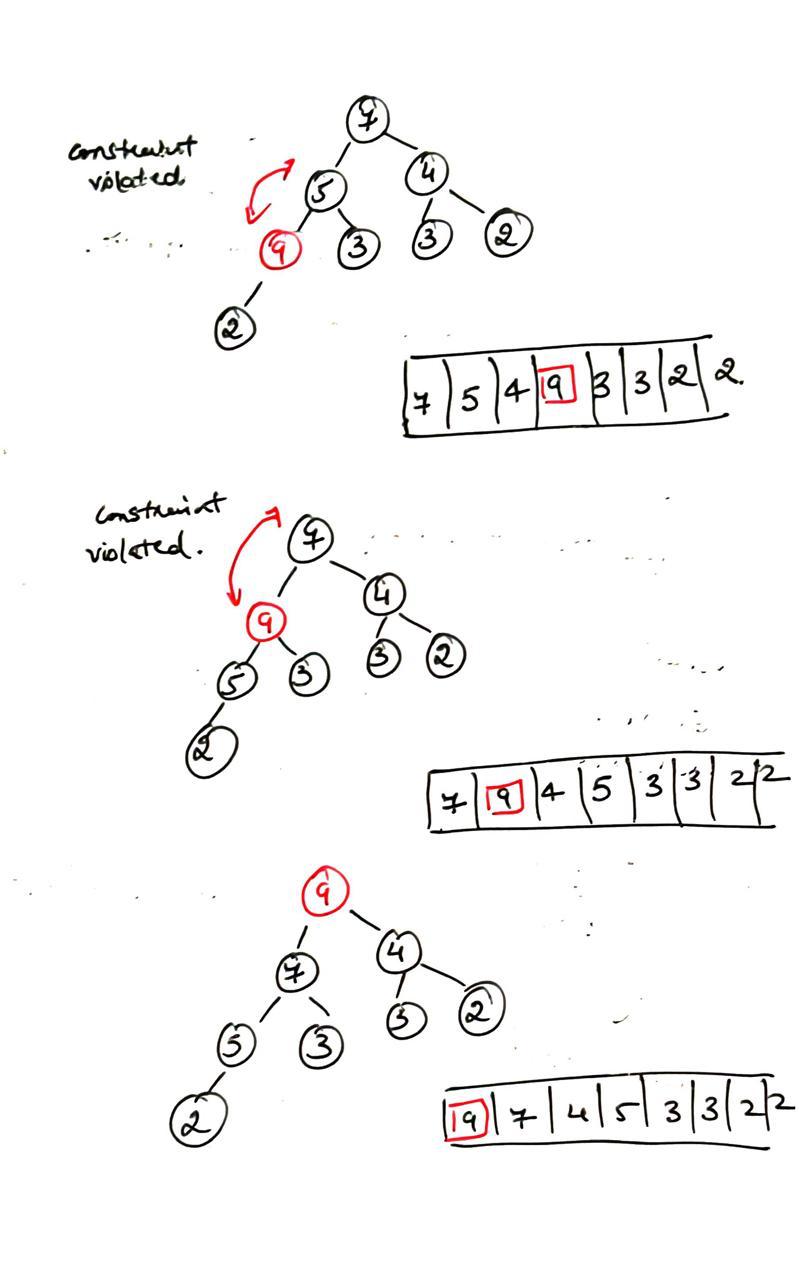 7
constraint
violated.
5 4
9 3 3 2
2
7 5 4 9 3 3 2 2
constraint
violated.
7
9 4
5 3 3 2
2
7 9 4 5 3 3 2 2
9
7 4
5 3 3 2
2
9 7 4 5 3 3 2 2